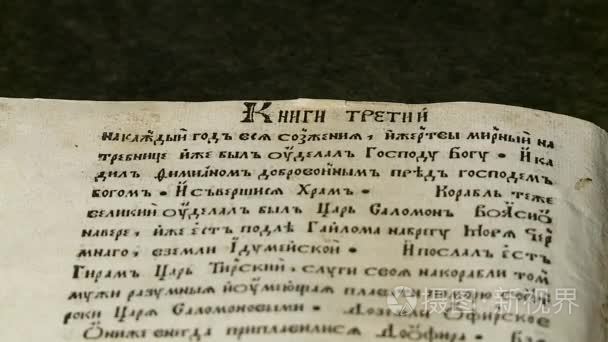 Книги третии
на каждый годъ всесозжения, и жертвы мирный на
требнице иже былъ оуделалъ Господу Богу • И ка
дилъ фимианом добровонным предъ господем
богом • И съвершися Храмъ • Корабль теже
великий оуделал былъ Царь Саломонъ
навере, иже естъ подлѣ Гайлома на брегу Моря Чер
мнаго, в земли Идумейской • И послал естъ
Гирамъ Царь Тирский, слуги своя на корабли том
мужи разумныя и оумеющая
роки Царя Саломоновыми • Офирское
Они же внегда приплавилися До Офира •
摄图·新视界